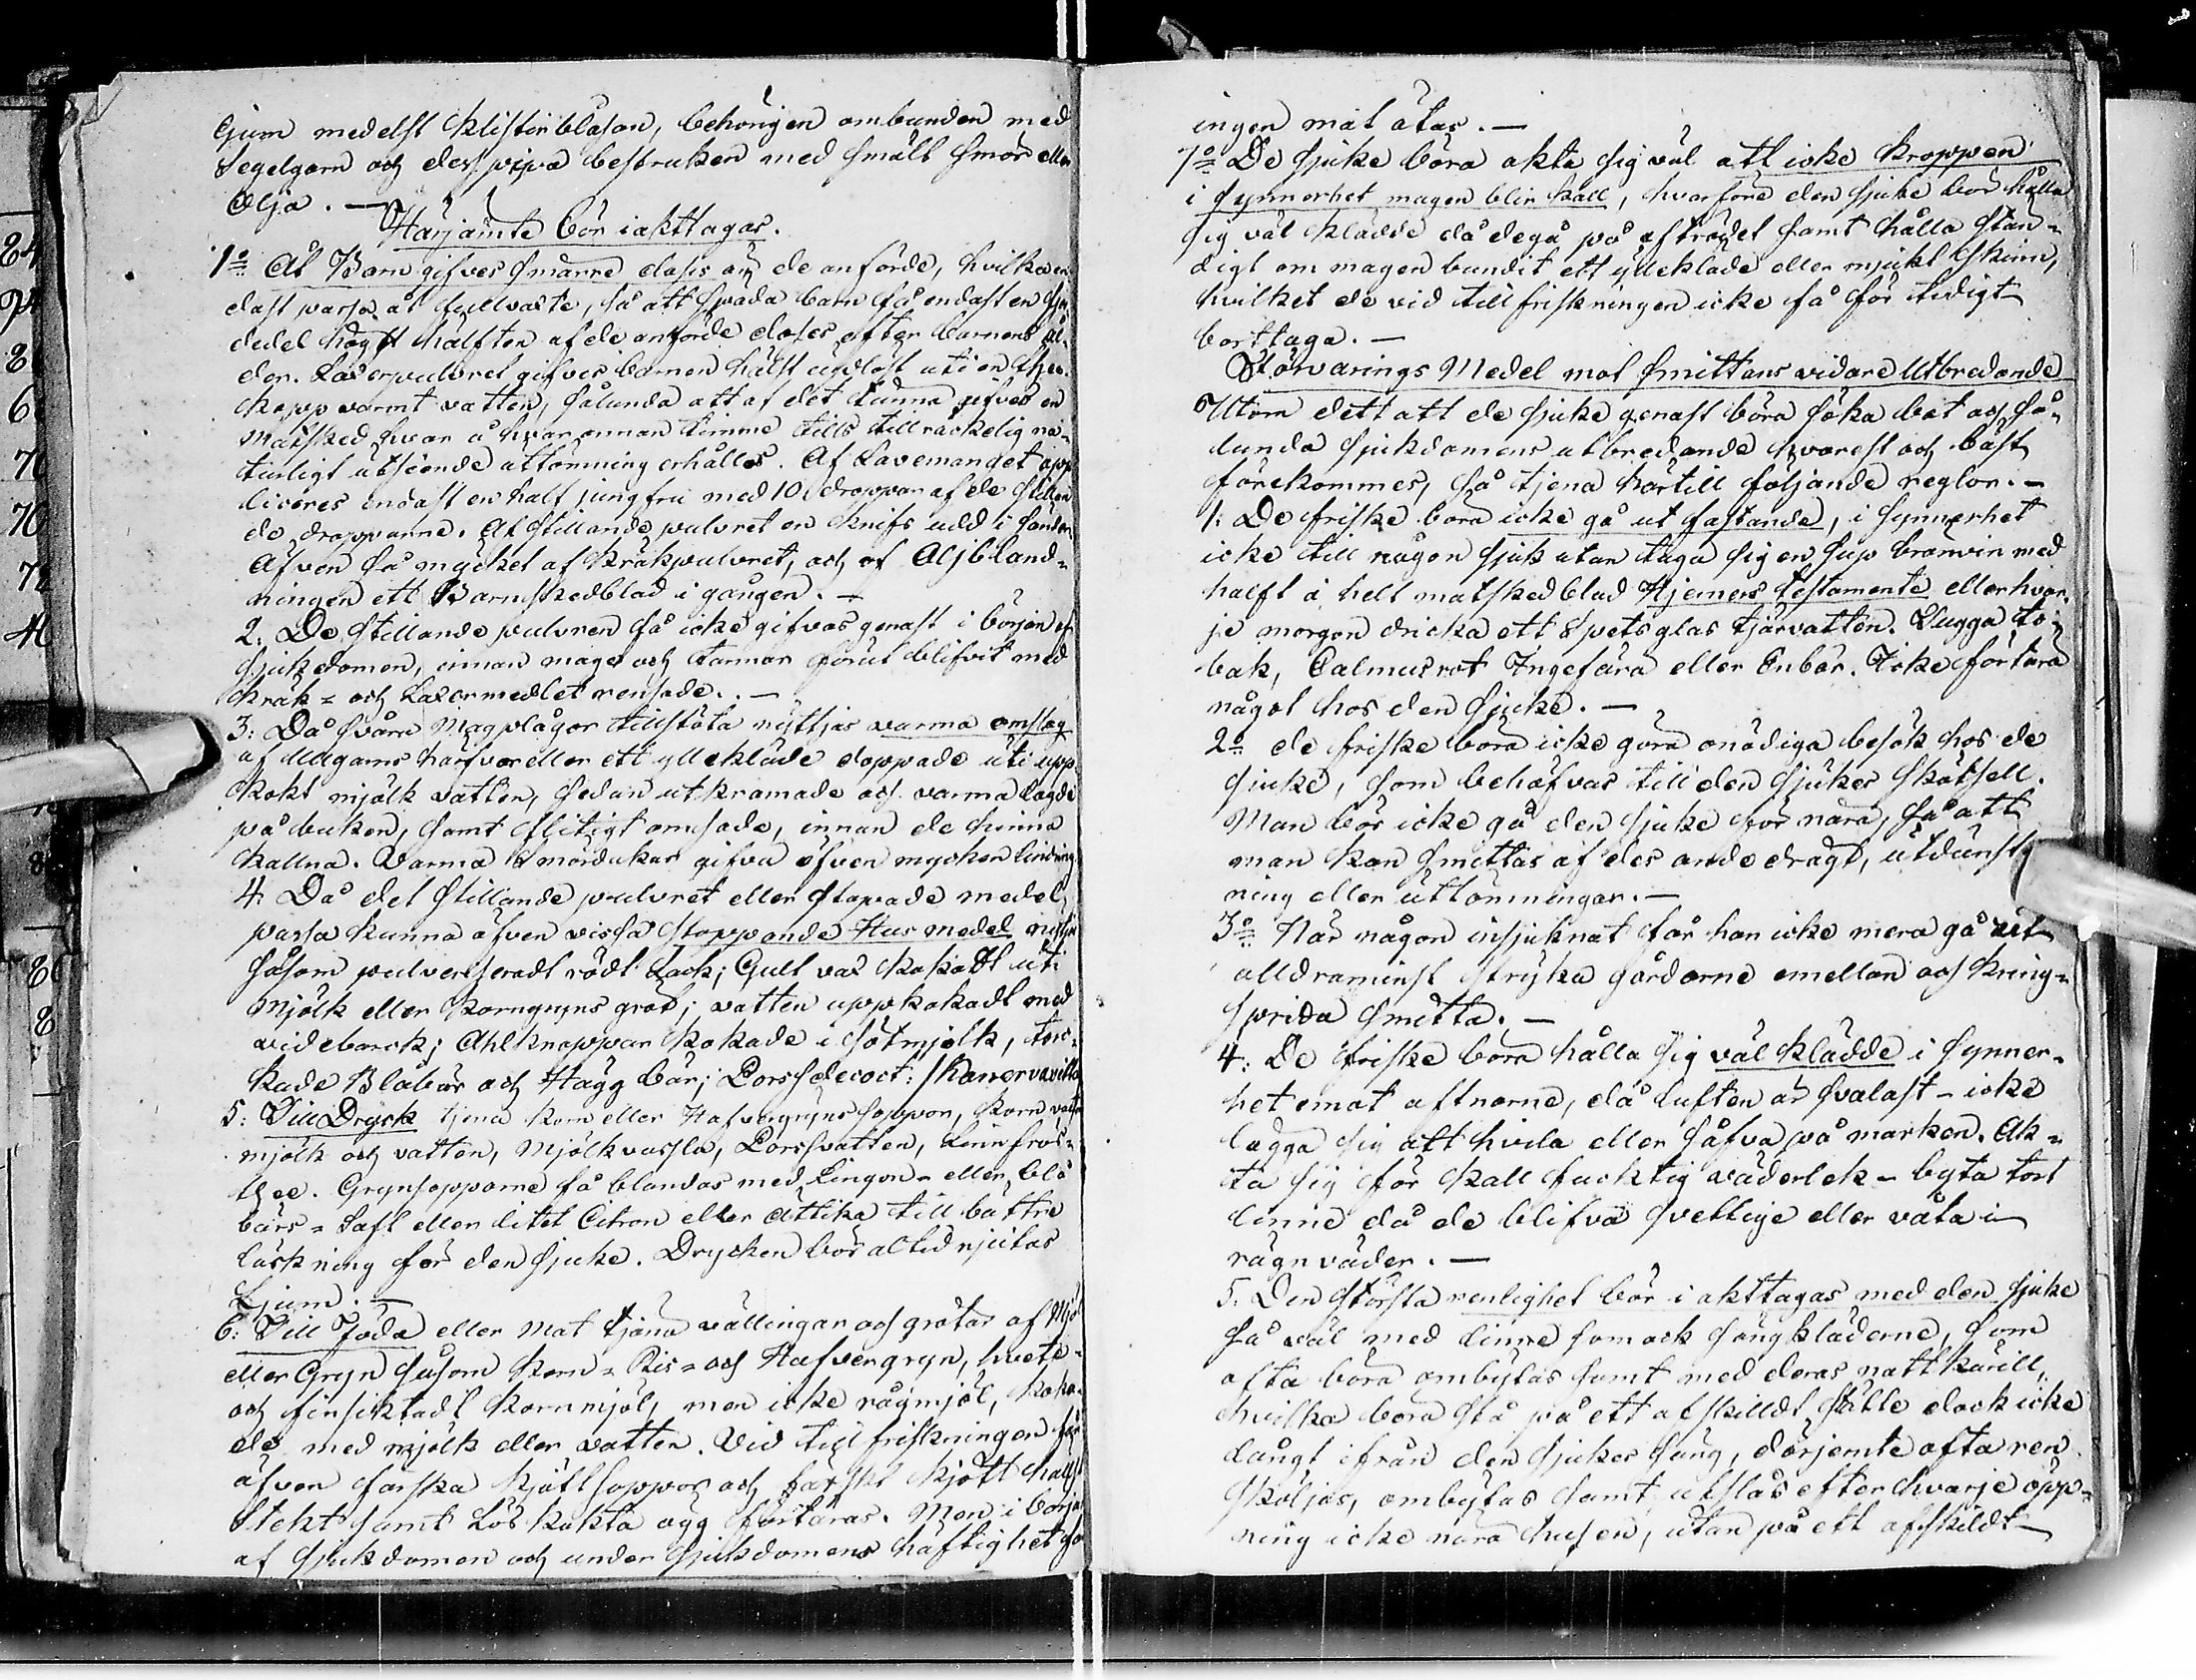 ljum medelst klisterblåsan, behörigen ombunden med
Segelgarn och dess pipa bestruken med smält smör eller
Olja. —
Härjämte bör iakttagas.
1o At Barn gifves smärre doses än de anförde, hvilka en-
dast passa åt fullväxte, så att späda barn få endast en fjer-
dedel högst hälften af de anförde doses efter barnens ål-
der. Laxerpulvret gifves barnen hälst updlöst uti en thee-
kopp varmt vatten, sålunda att af det tunna gifves en
Matsked hvar à hvar annan timme tills tillräckelig na-
turligt utseende uttömning erhålles. Af Lavemanget app-
liceres endast en half jungfru med 10 droppar af de stillan
de dropparne. Af stillande pulvret en knifs udd i sänder
Äfven så mycket af kräkpulvret, och af Oljbland-
ningen ett Barnskedblad i gången. —
2. De stillande pulvren få icke gifvas genast i början af
sjukdomen, innan mage och tarmar förut blifvit med
kräk- och Laxermedlet rensade. —
3: Då svåra Magplågor tillstöta nyttjas varma omslag
af Ullgarns härfvor eller ett ylleklade doppade uti upp
kokt mjölk vatten, sedan utkramade och varma lagde
på buken, samt flitigt omsade, innan de hinna
kallna. Varma Smördukar gifva äfven mycken lindring
4. Då det stillande pulvret eller stopade medel
passa kunna äfven vissa stoppande Hus medel
såsom pulveriseradt rödt Lack; Gult vax kokadt uti
Mjölk eller Korngryns gröt; vatten uppkokadt med
videbarck; Ahlknoppar kokade i sötmjölk, tor-
kade Blåbär och Hägg bär; Porssdecoct:
5: Till Dryck tjena korn eller Hafvergryns soppor, korn vatn
mjölk och vatten, Mjölkvassla, Porssvatten, Linnfrös-
thee. Grynsopporne få blandas med Lingon- eller blå
bärs-Saft eller litet Citron eller Ättika till bättre
läskning för den sjuke. Drycken bör altid njutas
Ljum. —
6: Till Föda eller Mat tjäna vällingar och grötar af Mjöl
eller Gryn såsom korn- Ris- och Hafvergryn, hvete-
och finsiktadt kornmjöl, men icke rågmjöl, koka-
de med mjölk eller vatten. Vid tillfriskningen får
äfven färska kjöttsoppor och färskt kjött halfst
Stekt samt Lös kokta ägg förtäras. Men i början
af sjukdomen och under sjukdomens häftighet
ingen mat ätas. —
7o De sjuke böra akta sig väl att icke kroppen
i synnerhet magen blir kall, hvarföre den sjuke bör hålla
sig väl klädde då de gå på afträdet samt hålla stän-
digt om magen bundit ett ylleklade eller mjukt skinn,
hvilket de vid tillfriskningen icke få för tidigt
borttaga. —
Förvarings Medel mot smittans vidare Utbredande
Utom dett att de sjuke genast böra söka bot och så-
lunda sjukdomens utbredande sparest och bäst
förekommes, så tjena härtill följande reglor. —
1: De friske böra icke gå ut fastande, i synnerhet
icke till någon sjuk utan taga sig en sup bränvin med
halft à helt matskedblad Hjernes testamente eller hvar-
je morgon dricka ett Spetsglas tjärvatten. Tugga to-
bak, Calmusrot Ingefära eller Enbär. Icke förtära
något hos den sjuke. —
2o de friske böra icke göra onödiga besök hos de
sjuke, som behöfvas till den sjukes skötsell.
Man bör icke gå den sjuke för nära, så att
man kan smittas af des andedrägt, utdunst
ning eller uttömningar. —
3o När någon insjuknat får han icke mera gå ut
alldraminst stryka gårdarne emellan och kring-
sprida smitta. —
4. De friske böra hålla sig väl klädde i synner-
het emot aftnarne, då luften är svalast - icke
lägga sig att hvila eller såfva på marken. Ak-
ta sig för kall fucktig väderlek - byta tort
linne då de blifva svettige eller våta i
rägnväder. —
5. Den största renlighet bör i akttagas med den sjuke
så väl med linne som ock sängkläderne, som
ofta böra ombytas samt med deras nattkärill,
hvilka böra stå på ett afskilldt ställe dock icke
långt ifrån den sjukes säng, därjemte ofta ren
sköljas, ombytas samt utslås efter hvarje öpp-
ning icke nära husen, utan på ett afskildt